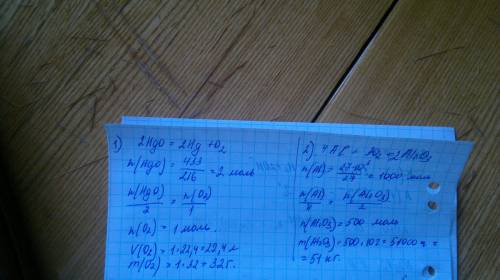 1) 2HgO = 2Hg + O₂
n(HgO) = 433/216 = 2 моль
n(HgO)/2 = n(O₂)/1
n(O₂) = 1 моль
V(O₂) = 1·22,4 = 22,4 л
m(O₂) = 1·32 = 32 г.
2) 4Al + O₂ = 2Al₂O₃
n(Al) = 27·10³/27 = 1000 моль
n(Al)/4 = n(Al₂O₃)/2
n(Al₂O₃) = 500 моль
m(Al₂O₃) = 500·102 = 51000 г =
= 51 кг.